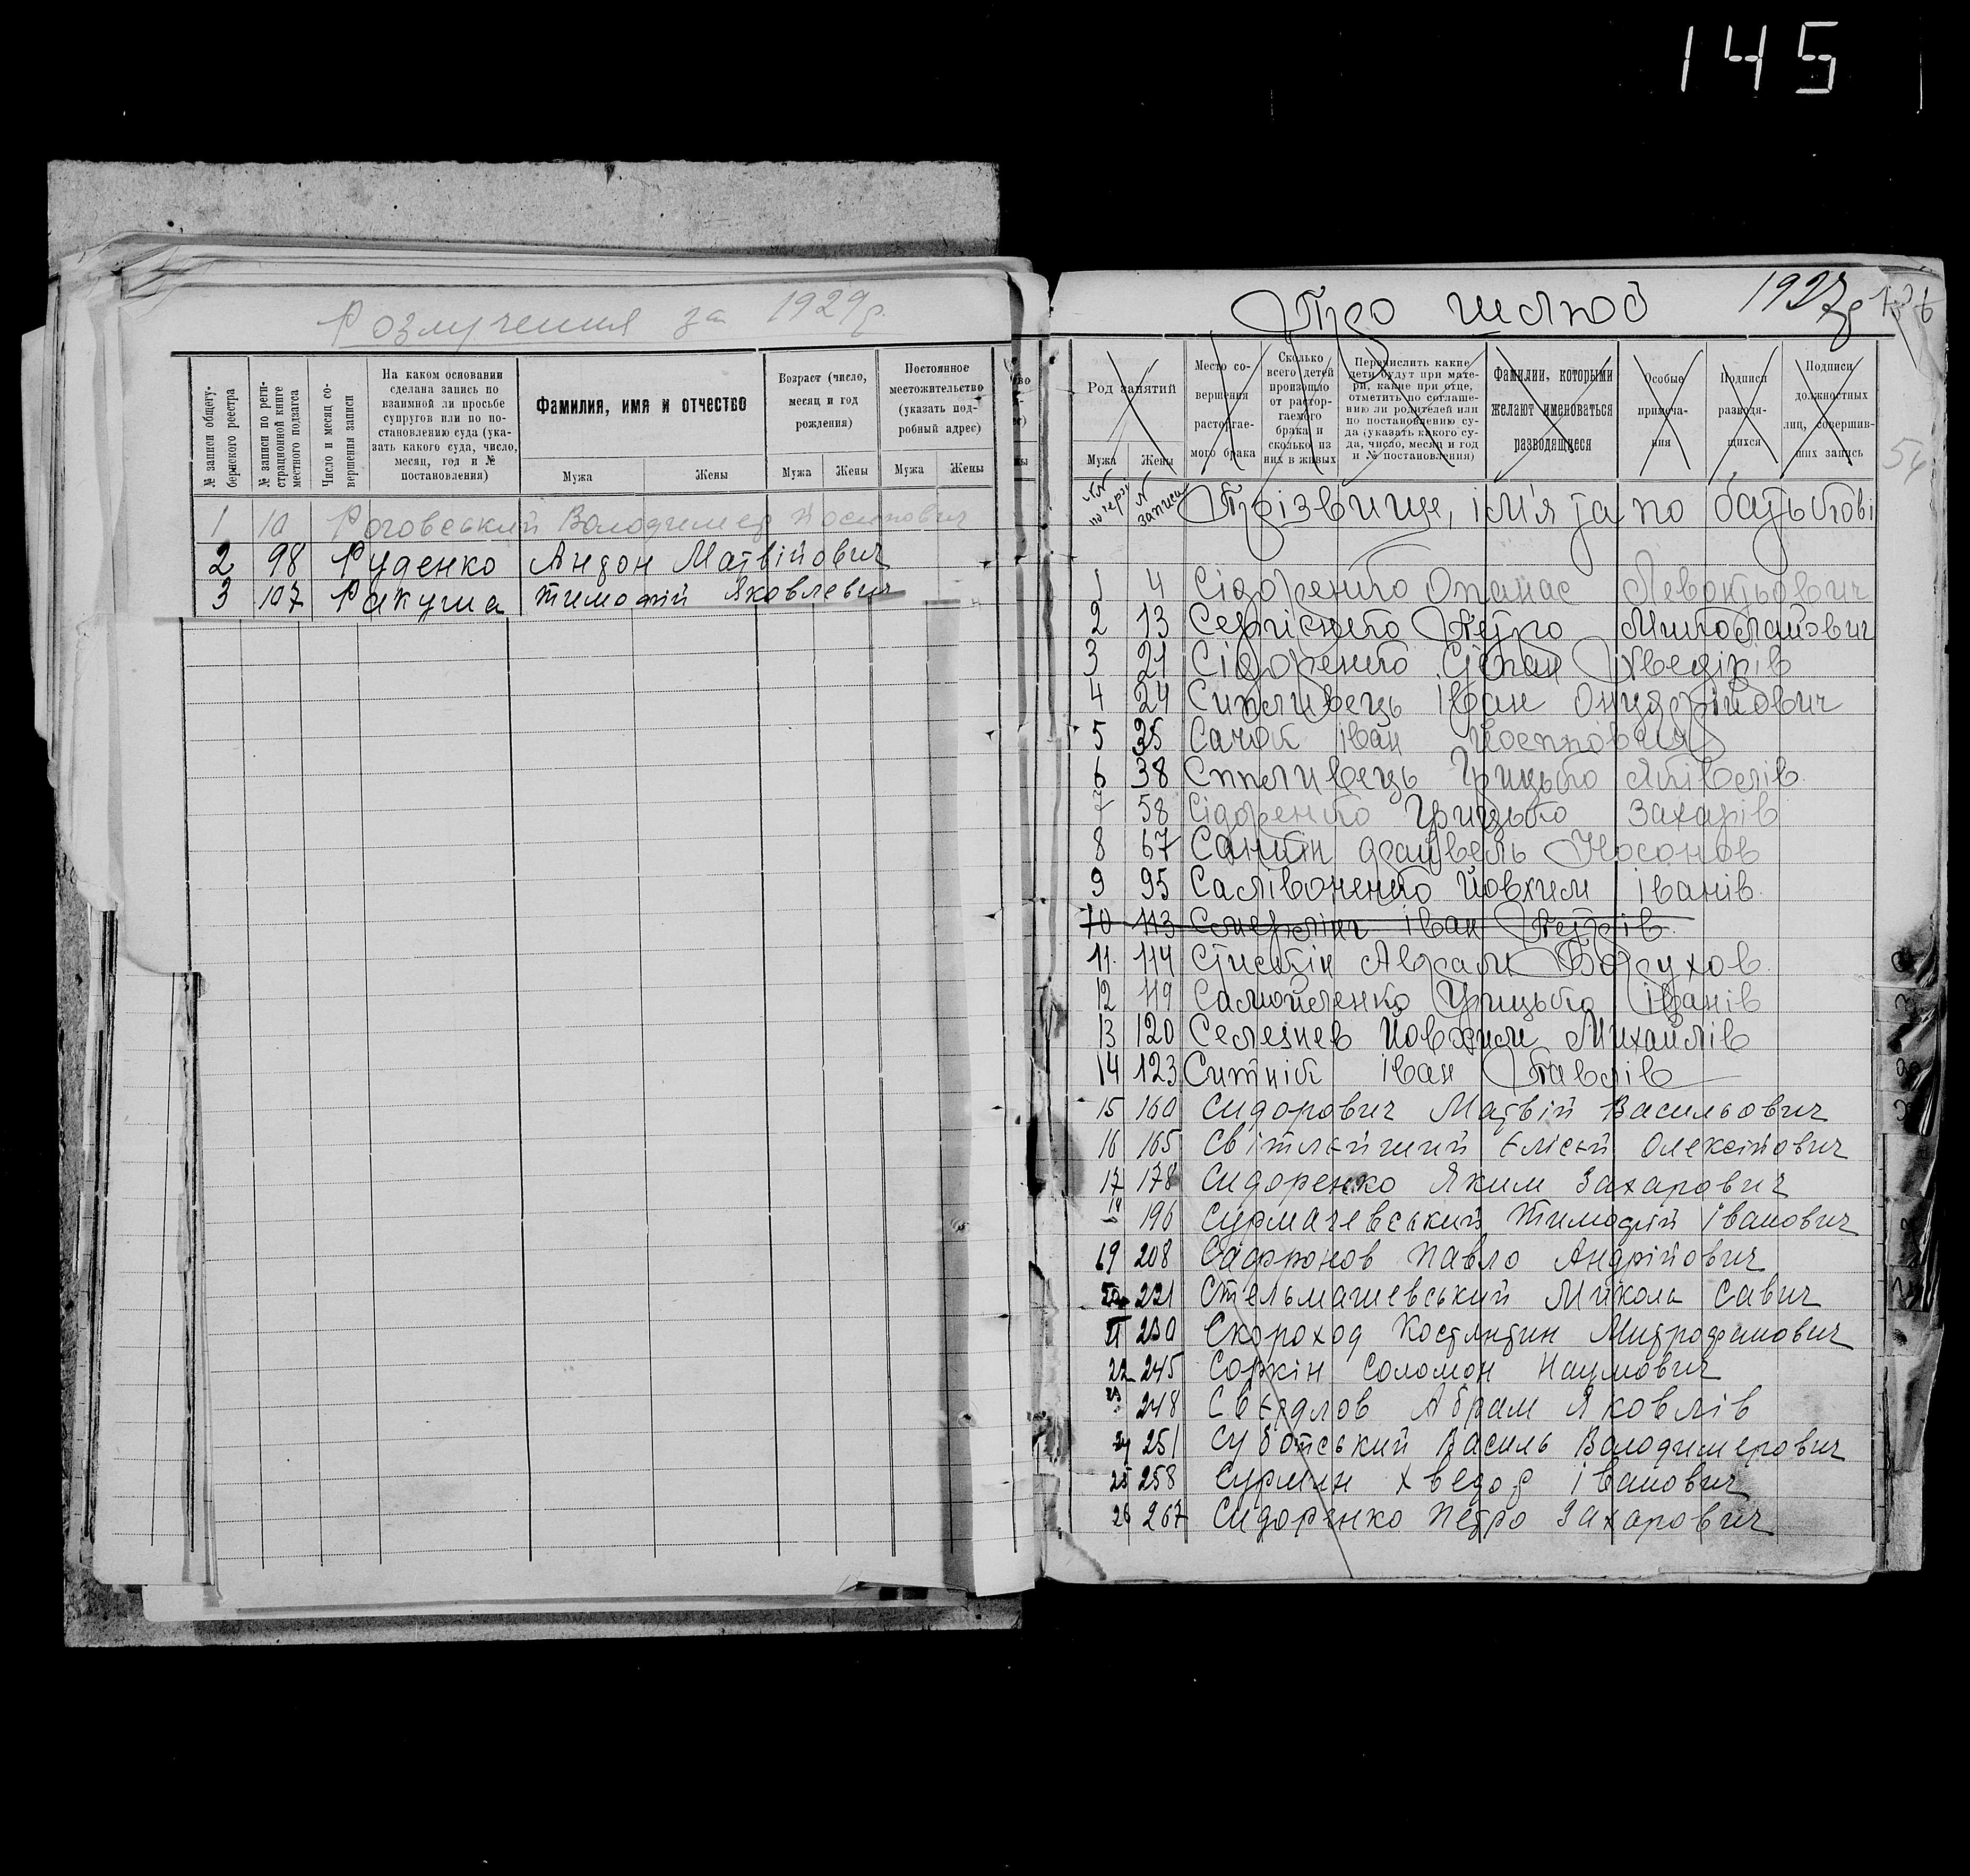 145
Розлучення за 1929 р.
№ записи общегу-
бернского реестра
№ записи по реги-
страционной книге
местного подзагса
Число и месяц со-
вершения записи
На каком основании
сделана запись по
взаимной ли просьбе
супругов или по по-
становлению суда (ука-
зать какого суда, число,
месяц, год и №
постановления)
Фамилия, имя и отчество
Мужа Жены
Возраст (число,
месяц и год
рождения)
Мужа Жены
Постоянное
местожительство
(указать под-
робный адрес)
Мужа Жены
1 10 Роговський Володимер Йосипович
2 98 Руденко Андон Матвійович
3 107 Ракуша Тимофій Яковлевич
Про шлюб 1927р
54
Род занятий
Мужа Жены
Место со-
вершения
расторгае-
мого брака
Сколько
всего детей
произошло
от растор-
гаемого
брака и
сколько из
них в живых
Перечислить какие
дети будут при мате-
ри, какие при отце,
отметить по соглаше-
нию ли родителей или
по постановлению су-
да (указать какого су-
да, число, месяц и год
и № постановления)
Фамилии, которыми
желают именоваться
разводящиеся
Особые
примеча-
ния
Подписи
разводя-
щихся
Подписи
должностных
лиц, совершив-
ших запись
№№ по чер. № записа Прізвище, ім'я та по батькові
1 4 Сідоренко Опанас Левонтьович
2 13 Сергієнко Петро Миколайович
3 21 Сідоренко Степан Хведірів
4 24 Сипливець Іван Онуфрійович
5 35 Сачок Іван Йосипович
6 38 Сипливець Грицько Яківлів
7 58 Сідоренко Грицько Захарів
8 67 Файвель Носонов
9 95 Салівоненко Йовхим Іванів
10 113 Іван Петрів
11. 114 Стискін Аврам Борухов
12 119 Самойленко Грицько Іванів
13 120 Селезнев Йовхим Михайлів
14 123 Ситнік Іван Павлів
15 160 Сидорович Матвій Васильович
16 165 Світлейший Єлісей Олексійович
17 178 Сидоренко Яким Захарович
18 196 Сурмачевський Тимофій Іванович
19 208 Сафронов Павло Андрійович
20 221 Стельмашевський Микола Савич
21 230 Скороход Костянтин Митрофанович
22 245 Соркін Соломон Наумович
23 248 Свердлов Абрам Яковлів
24 251 Суботський Василь Володимерович
25 258 Сурмин Хведор Іванович
26 267 Сидоренко Петро Захарович